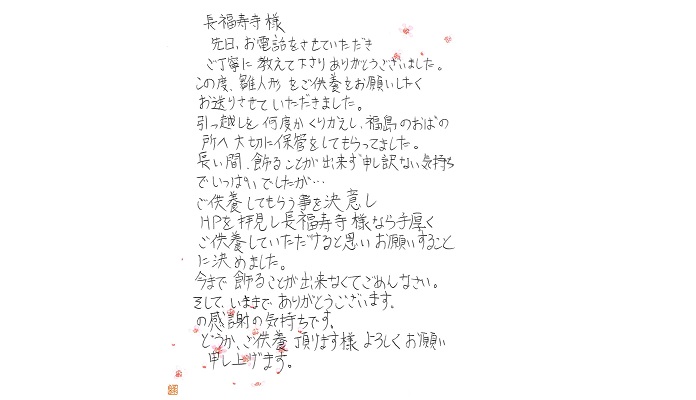 長福寿寺様
先日、お電話をさせていただき
ご丁寧に教えて下さりありがとうございました。
この度、雛人形をご供養をお願いしたく
お送りさせていただきました。
引っ越しを何度かくりかえし、福島のおばの
所へ大切に保管をしてもらってました。
長い間、飾ることが出来ず申し訳ない気持ち
でいっぱいでしたが…
ご供養してもらう事を決意し
HPを拝見し長福寿寺様なら手厚く
ご供養していただけると思いお願いすること
に決めました。
今まで飾ることが出来なくてごめんなさい。
そして、いままでありがとうございます。
の感謝の気持ちです。
どうか、ご供養頂けます様よろしくお願い
申し上げます。